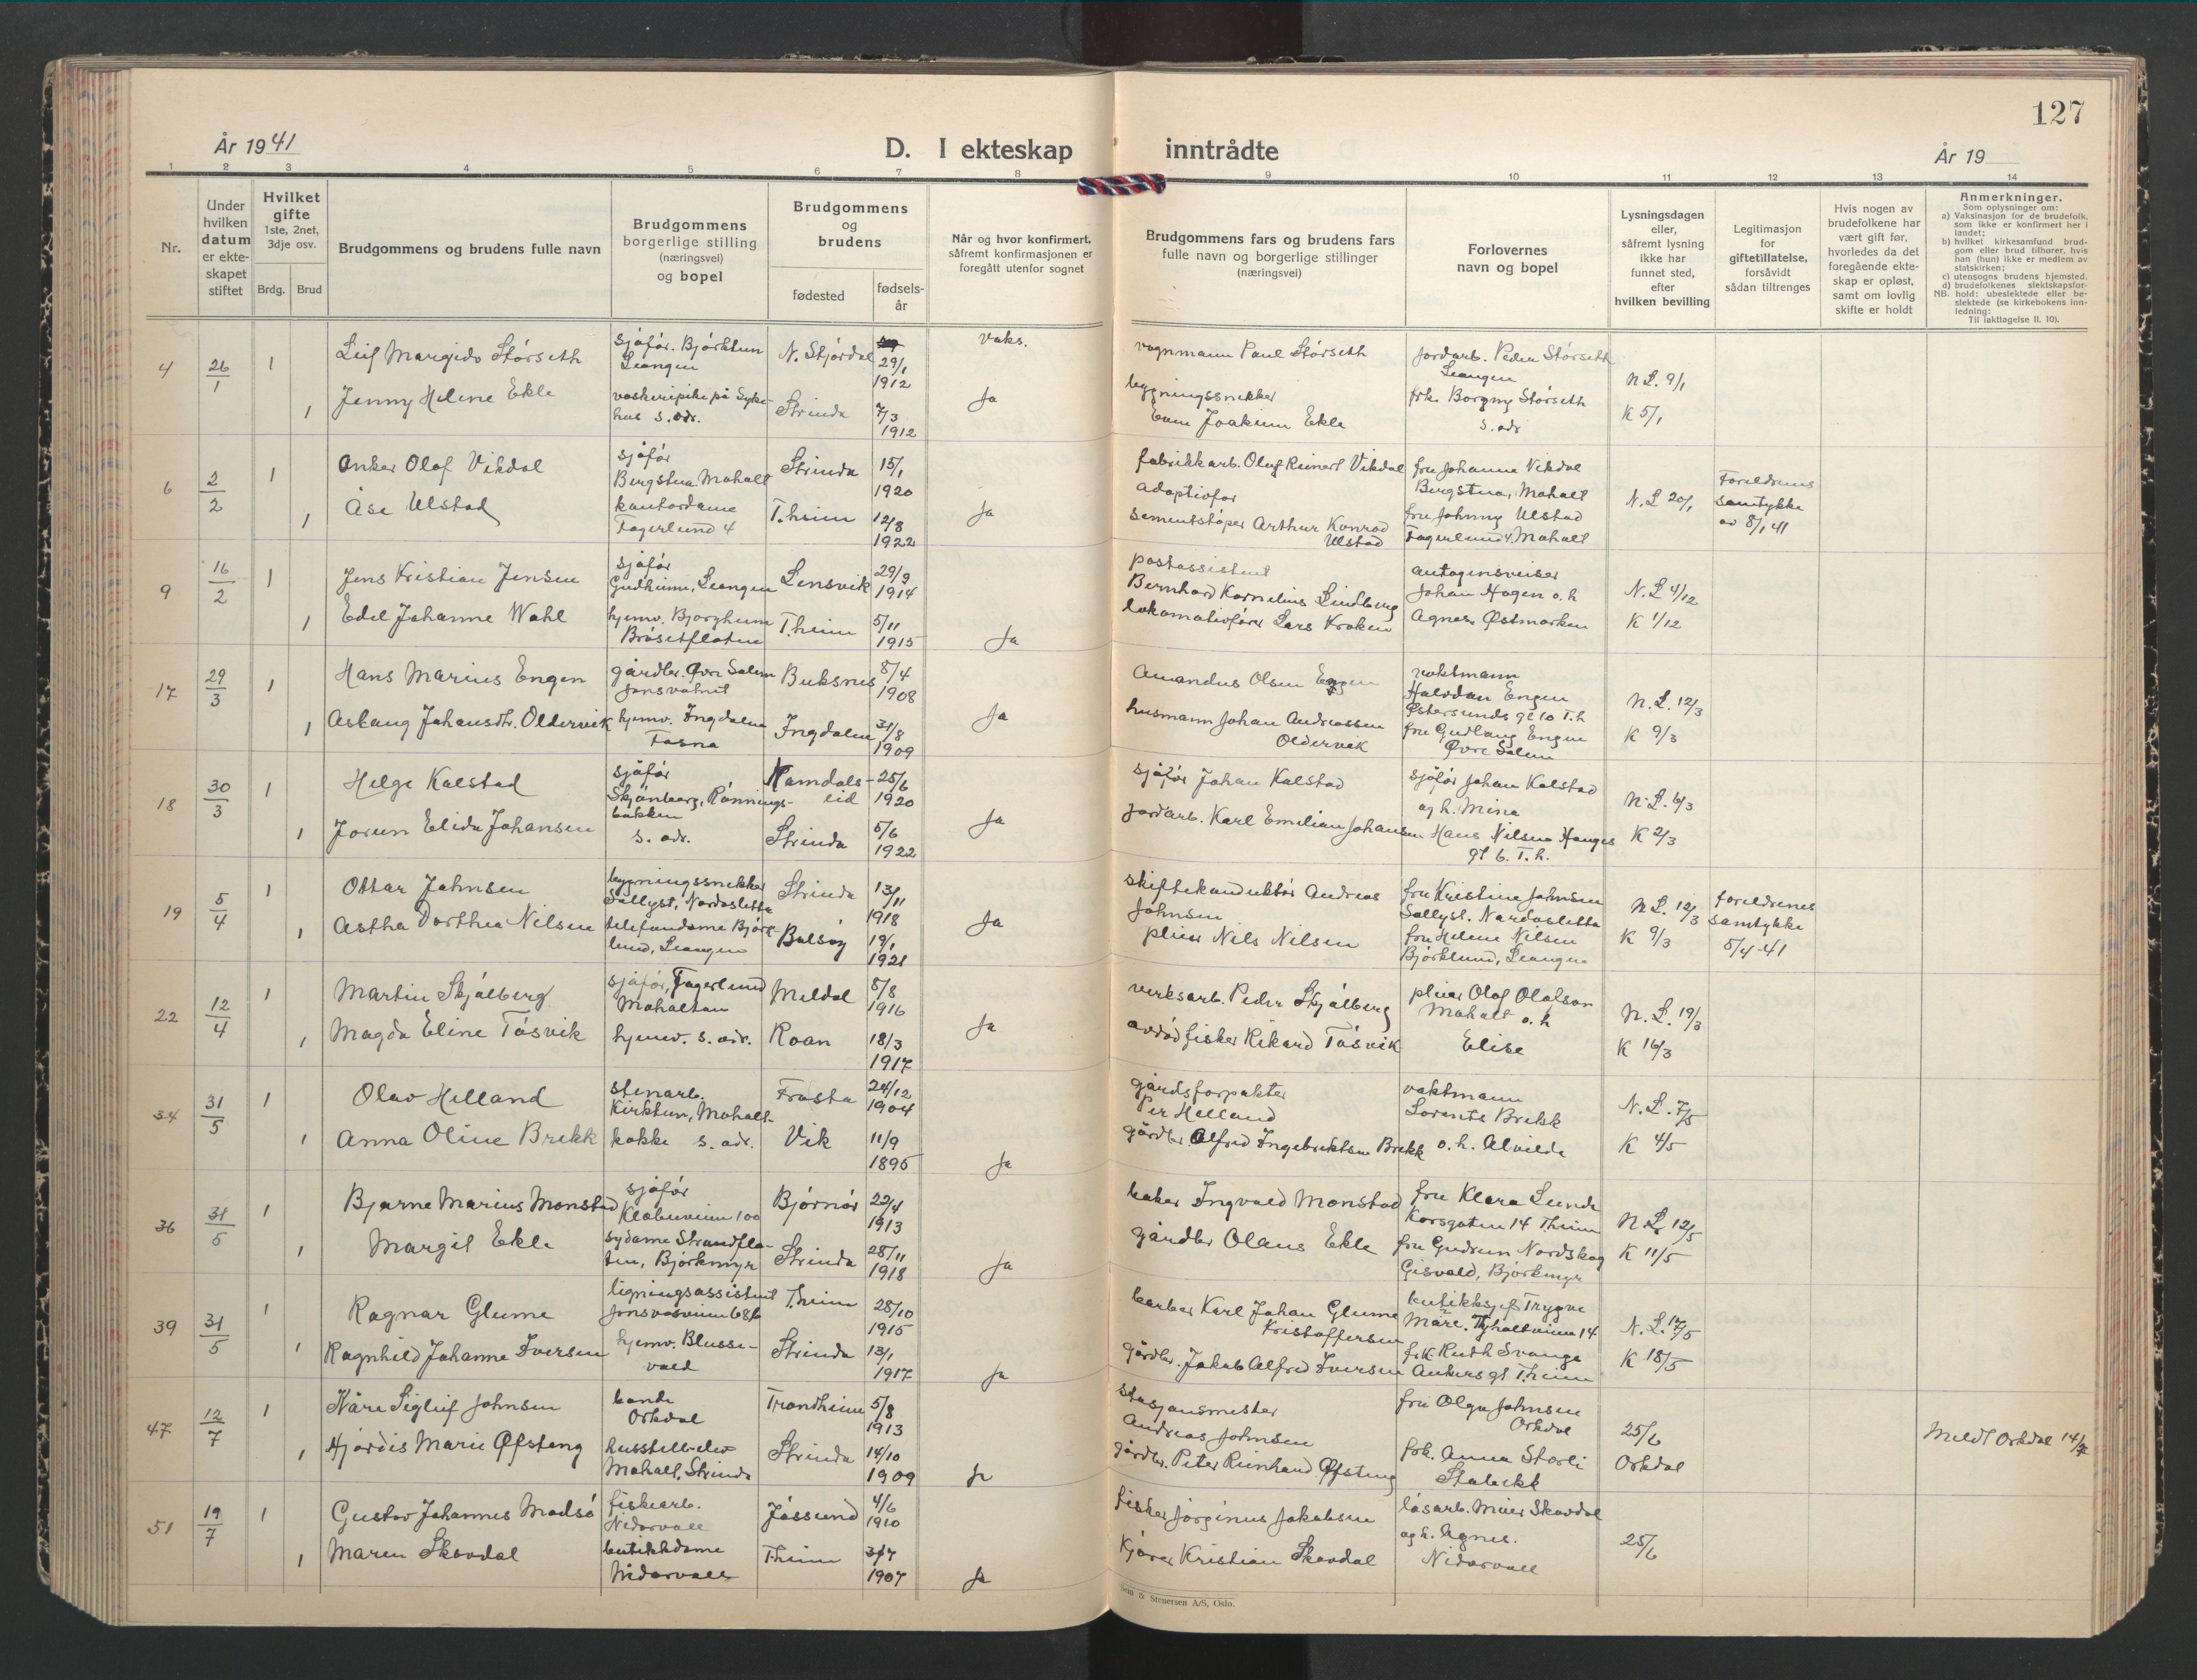 127
År 1941
D. I ekteskap inntrådte
År 19
1 2 3 4 5 6 7 8 9 10 11 12 13 14
Nr.
Under
hvilken
datum
er ekte-
skapet
stiftet
Hvilket
gifte
1ste, 2net,
3dje osv.
Brdg. Brud
Brudgommens og brudens fulle navn
Brudgommens
borgerlige stilling
(næringsvei)
og bopel
Brudgommens
og
brudens
fødested
fødsels-
år
Når og hvor konfirmert,
såfremt konfirmasjonen er
foregått utenfor sognet
Brudgommens fars og brudens fars
fulle navn og borgerlige stillinger
(næringsvei)
Forlovernes
navn og bopel
Lysningsdagen
eller,
såfremt lysning
ikke har
funnet sted,
efter
hvilken bevilling
Legitimasjon
for
giftetillatelse,
forsåvidt
sådan tiltrenges
Hvis nogen av
brudefolkene har
vært gift før,
hvorledes da det
foregående ekte-
skap er opløst,
samt om lovlig
skifte er holdt
Anmerkninger.
Som oplysninger om:
a) Vaksinasjon for de brudefolk,
som ikke er konfirmert her i
landet;
b) hvilket kirkesamfund brud-
gom eller brud tilhører, hvis
han (hun) ikke er medlem av
statskirken;
c) utensogns brudens hjemsted.
d) brudefolkenes slektskapsfor-
NB. hold: ubeslektede eller be-
slektede (se kirkebokens inn-
ledning:
Til iakttagelse II. 10).
4 26/1 1 Leif Margido Störseth
sjåför. Björktun
Leangen
N. Stjördal
29/1
1912
Vaks.
vognmann Paul Störseth
jordarb. Peder Störseth
Leangen
N.L. 9/1
1 Jenny Helene Ekle
vaskeripike på Syke-
hus s. adr.
Strinda
7/3
1912
Ja
bygningssnekker
Even Joakim Ekle
frk. Borgny Störseth
s. adr
K 5/1
6 2/2 1 Anker Olaf Vikdal
sjåför
Bergstua, Moholt
Strinda
15/1
1920
fabrikkarb. Oluf Reinert Vikdal
fru Johanna Vikdal
Bergstua, Moholt
N.L 20/1
Foreldrenes
samtykke
av 8/1 41
1 Åse Ulstad
kontordame
Fagerlund 4
T.heim
12/8
1922
Ja
Adoptivfar
sementstöper Arthur Konrad
Ulstad
fru Johnny Ulstad
Fagerlund 4, Moholt
9 16/2 1 Jens Kristian Jensen
sjåför
Gudheim, Leangen
Lensvik
29/9
1914
postassistent
Bernhard Kornelius Lindberg
autogensveiser
Johan Hagen o. h
N.L 4/12
1 Edel Johanne Wahl
hjemv. Borgheim
Bråsetflaten
T.heim
5/11
1915
Ja
lokomotivförer Lars Kroken
Agnes Østmarken
K 1/12
17 29/3 1 Hans Marius Engen
gårdbr. Øvre Solem
Jonsvatnet
Buksnes
8/4
1908
Amandus Olsen Engen
vaktmann
Halvdan Engen
Østersunds gt 10 T.h
N.L. 12/3
1 Aslaug Johansdtr. Oldervik
hjemv. Ingdalen
Ingdalen
31/8
1909
Ja
husmann Johan Andreassen
Oldervik
fru Gudlaug Engen
Øvre Solem
K 9/3
18 30/3 1 Helge Kalstad
sjåför
Skjönberg, Rönnings-
bakken
Namdals-
eid
25/6
1920
sjåför Johan Kalstad
sjåför Johan Kalstad
og h. Mina
N.L. 6/3
1 Jorun Elida Johansen
s. adr.
Strinda
5/6
1922
Ja
jordarb. Karl Emilian Johansen
Hans Nilsens Hauges
gt 6. T.h.
K 2/3
19 5/4 1 Ottar Johnsen
bygningssnekker
Sollyst, Nardosletta
Strinda
13/11
1918
skiftekonduktör Andreas
Johnsen
fru Kristine Johnsen
Sollyst. Nardosletta
N.L. 12/3
foreldrenes
samtykke
5/4-41
1 Astha Dorthea Nilsen
telefondame Björk-
lund, Leangen
Bolsöy
19/1
1921
Ja
pleier Nils Nilsen
fru Helene Nilsen
Björklund, Leangen
K 9/3
22 12/4 1 Martin Skjölberg
sjåför, Fagerlund
Moholtan
Meldal
5/8
1916
verksarb. Peder Skjölberg
pleier Olaf Olafson
Moholt o. h
N.L. 19/3
1 Magda Eline Tösvik
hjemv. s. adr.
Roan
18/3
1917
Ja
avdöd fisker Rikard Tösvik
Elise
K 16/3
34 31/5 1 Olav Helland
stenarb.
Kirktun, Moholt
Frosta
24/12
1904
gårdsforpakter
Per Helland
vaktmann
Lorents Brekk
N.L. 7/5
1 Anna Oline Brekk
kokke s. adr.
Vik
11/9
1895
Ja
gårdbr. Alfred Ingebriktsen Brekk
o. h. Alvilde
K 4/5
36 31/5 1 Bjarne Marius Monstad
sjåför
Klæbuveien 100
Björnör
22/4
1913
baker Ingvald Monstad
fru Klara Lunde
Korsgaten 14 Theim
N.L. 12/5
1 Margit Ekle
sydame Strandfla-
ten, Björkmyr
Strinda
28/11
1918
Ja
gårdbr Olaus Ekle
fru Gudrun Nordskog
Gisvold, Björkmyr
K 11/5
39 31/5 1 Ragnar Glume
ligningsassistent
Jonsvasveien 68b
T.heim
28/10
1915
barber Karl Johan Glume
Kristoffersen
butikksjef Trygve
Mære. Tyholtveien 14
N.L. 17/5
1 Ragnhild Johanne Iversen
hjemv. Blusse-
vold
Strinda
13/1
1917
Ja
gårdbr. Jakob Alfred Iversen
frk. Ruth Svange
Ankers gt T.heim
K 18/5
47 12/7 1 Kåre Sigleif Johnsen
bonde
Orkdal
Trondheim
5/8
1913
stasjonsmester
Andreas Johnsen
fru Olga Johnsen
Orkdal
25/6
Meldt Orkdal 14/7
1 Hjördis Marie Øfsteng
husstell-elev
Moholt, Strinda
Strinda
14/10
1909
Ja
gårdbr. Peter Reinhard Øfsteng
frk. Anna Storli
Stabekk
Orkdal
51 19/7 1 Gustav Johannes Madsö
fiskearb.
Nidarvoll
Jössund
4/6
1910
fisker Jörginus Jakobsen
låsarb. Meier Skavdal
og h. Agnes.
25/6
1 Maren Skavdal
butikkdame
Nidarvoll
T.heim
3/7
1907
Ja
kjörer Kristian Skavdal
Nidarvoll
Sem & Stenersen A/S, Oslo.